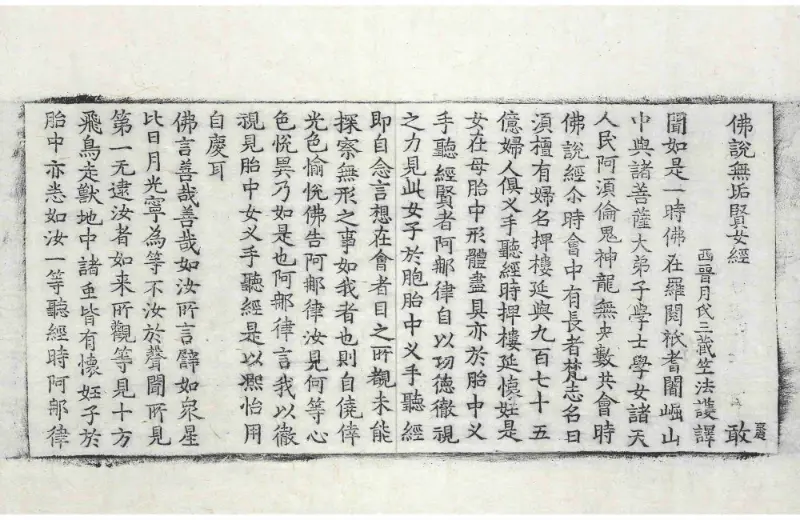 佛說無垢賢女經 敢 麗
西晉月氏三藏竺法護譯
聞如是一時佛在羅閱祇耆闍崛山
中與諸菩薩大弟子學士學女諸天
人民阿湏倫鬼神龍無央數共會時
佛說經尒時會中有長者梵志名曰
湏檀有婦名押樓延與九百七十五
億婦人俱义手聽經時押樓延懷妊是
女在母胎中形體盡具亦於胎中义
手聽經賢者阿郍律自以功德徹視
之力見此女子於胞胎中义手聽經
即自念言想在會者目之所覩未能
探察無形之事如我者也則自僥倖
光色愉悅佛告阿郍律汝見何等心
色悅異乃如是也阿郍律言我以徹
視見胎中女义手聽經是以熈怡用
自慶耳
佛言善哉善哉如汝所言辟如衆星
比日月光寧為等不汝於聲聞所見
第一无逮汝者如來所觀等見十方
飛鳥走獸地中諸䖝皆有懷妊子於
胎中亦悉如汝一等聽經時阿郍律